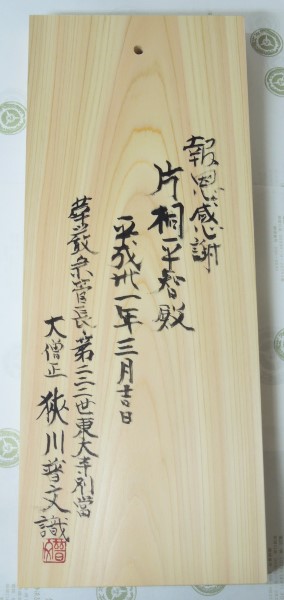 報恩感謝
片桐平智殿
平成卅一年三月吉日
華厳宗管長第二二二世東大寺別當
大僧正 狹川普文 識